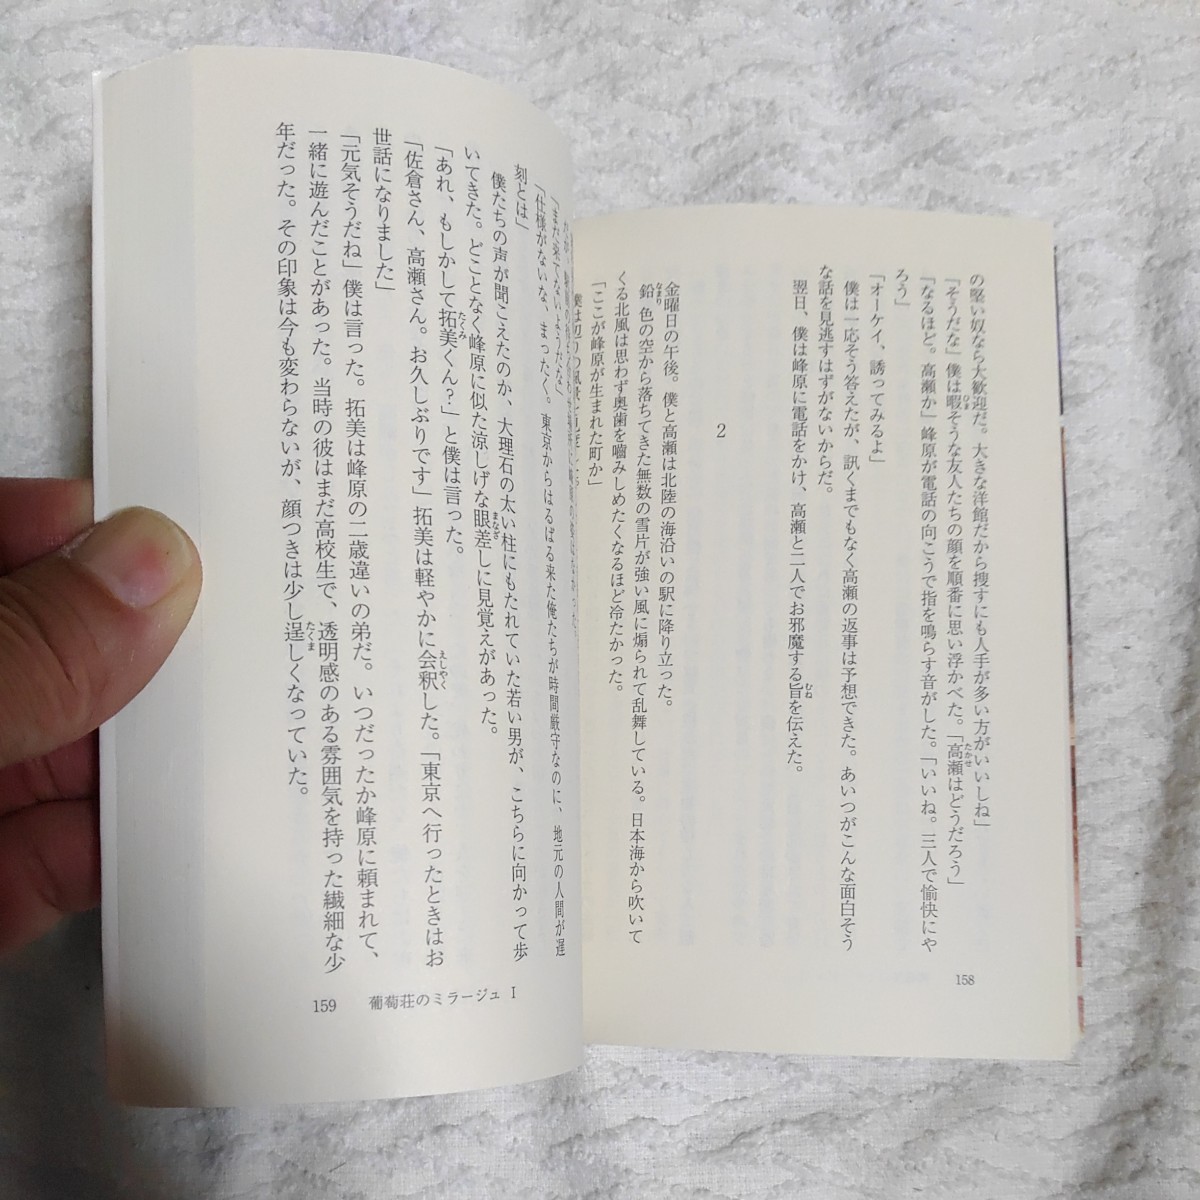 の堅い奴なら大歓迎だ。大きな洋館だから捜すにも人手が多い方がいいしね」
「そうだな」僕は暇そうな友人たちの顔を順番に思い浮かべた。「高瀬はどうだろう」
「なるほど。高瀬か」峰原が電話の向こうで指を鳴らす音がした。「いいね。三人で愉快にや
ろう」
「オーケイ、誘ってみるよ」
僕は一応そう答えたが、訊くまでもなく高瀬の返事は予想できた。あいつがこんな面白そう
な話を見逃すはずがないからだ。
翌日、僕は峰原に電話をかけ、高瀬と二人でお邪魔する旨を伝えた。
2
金曜日の午後。僕と高瀬は北陸の海沿いの駅に降り立った。
鉛色の空から落ちてきた無数の雪片が強い風に煽られて乱舞している。日本海から吹いて
くる北風は思わず奥歯を嚙みしめたくなるほど冷たかった。
「ここが峰原が生まれた町か」
僕は辺りの風景を見
158
「まだ来てないようだな」
「仕様がないな、まったく。東京からはるばる来た俺たちが時間厳守なのに、地元の人間が遅
刻とは」
僕たちの声が聞こえたのか、大理石の太い柱にもたれていた若い男が、こちらに向かって歩
いてきた。どことなく峰原に似た涼しげな眼差しに見覚えがあった。
「あれ、もしかして拓美くん?」と僕は言った。
「佐倉さん、高瀬さん。お久しぶりです」拓美は軽やかに会釈した。「東京へ行ったときはお
世話になりました」
「元気そうだね」僕は言った。拓美は峰原の二歳違いの弟だ。いつだったか峰原に頼まれて、
一緒に遊んだことがあった。当時の彼はまだ高校生で、透明感のある雰囲気を持った繊細な少
年だった。その印象は今も変わらないが、顔つきは少し逞しくなっていた。
159 葡萄荘のミラージュ Ⅰ